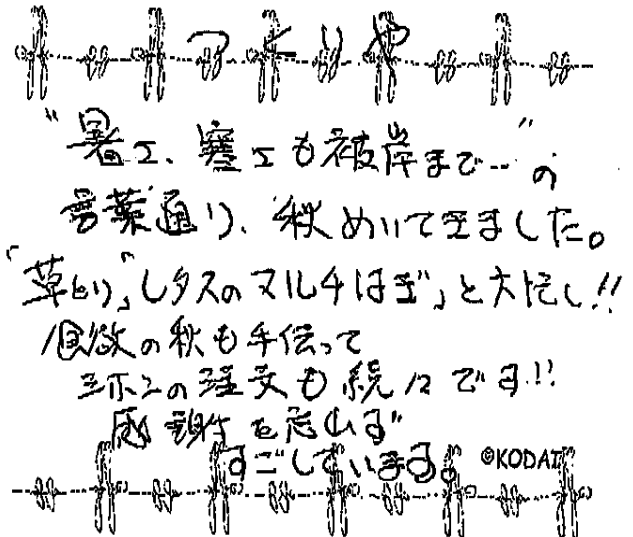 つくりや
"暑さ、寒さも被岸まで…"の
言葉通り、秋めいてきました。
「草とり」「レタスのマルチはぎ」と大忙し!!
食欲の秋も手伝って
シホンの注文も続々です!!
感謝を忘れず
すごしています。
©KODAI